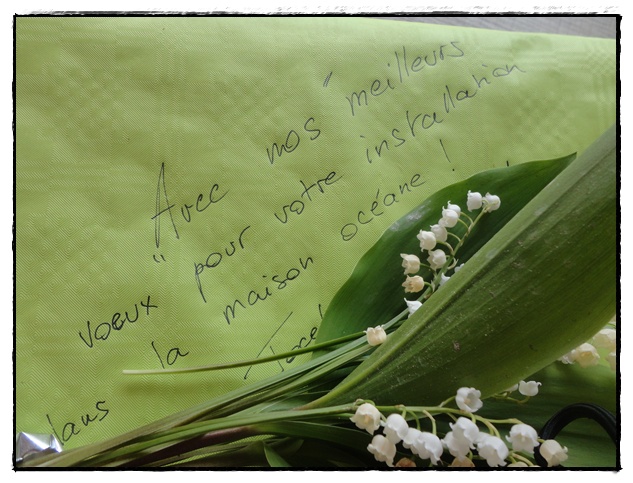 " Avec nos meilleurs
voeux pour votre installation
dans la maison océane ! "